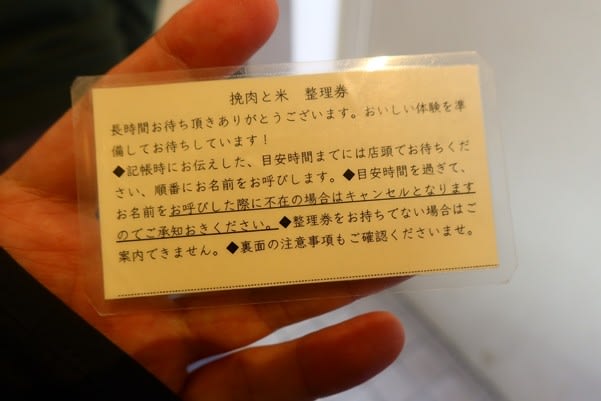 挽肉と米　整理券
長時間お待ち頂きありがとうございます。おいしい体験を準
備してお待ちしています！
◆記帳時にお伝えした、目安時間までには店頭でお待ちくだ
さい、順番にお名前をお呼びします。◆目安時間を過ぎて、
お名前をお呼びした際に不在の場合はキャンセルとなります
のでご承知おきください。◆整理券をお持ちでない場合はご
案内できません。◆裏面の注意事項もご確認くださいませ。